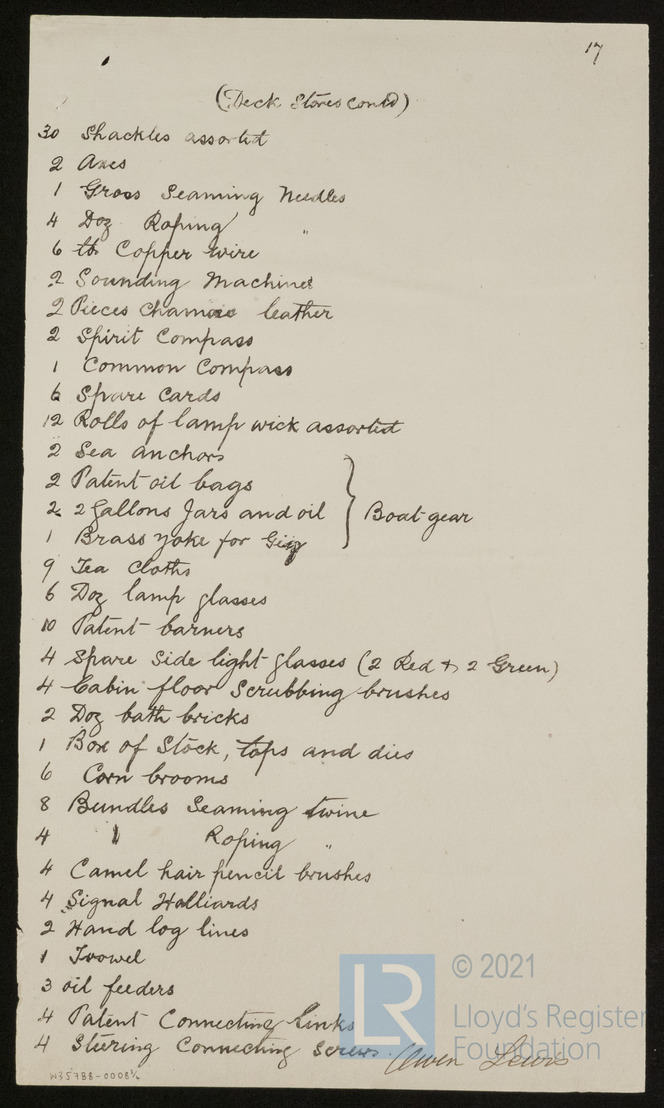 17
(Deck Stores contd)
30 Shackles assorted
2 Axes
1 Gross Seaming Needles
4 Doz Roping "
6 lb Copper wire
2 Sounding Machines
2 Pieces Chamois leather
2 Spirit Compass
1 Common Compass
6 Spare Cards
12 Rolls of lamp wick assorted
2 Sea anchors
2 Patent oil bags
2 2 Gallons Jars and oil } Boat gear
1 Brass yoke for Gig
9 Tea cloths
6 Doz lamp glasses
10 Patent barners
4 Spare Side light glasses (2 Red & 2 Green)
4 Cabin floor Scrubbing brushes
2 Doz bath bricks
1 Box of Stock, taps and dies
6 Corn brooms
8 Bundles Seaming twine
4 " Roping "
4 Camel hair pencil brushes
4 Signal Halliards
2 Hand log lines
1 Trowel
3 oil feeders
4 Patent Connecting links
4 Steering Connecting Screws.
Owen Lewis
W35788-0008 ¼
LR © 2021
Lloyd's Register
Foundation